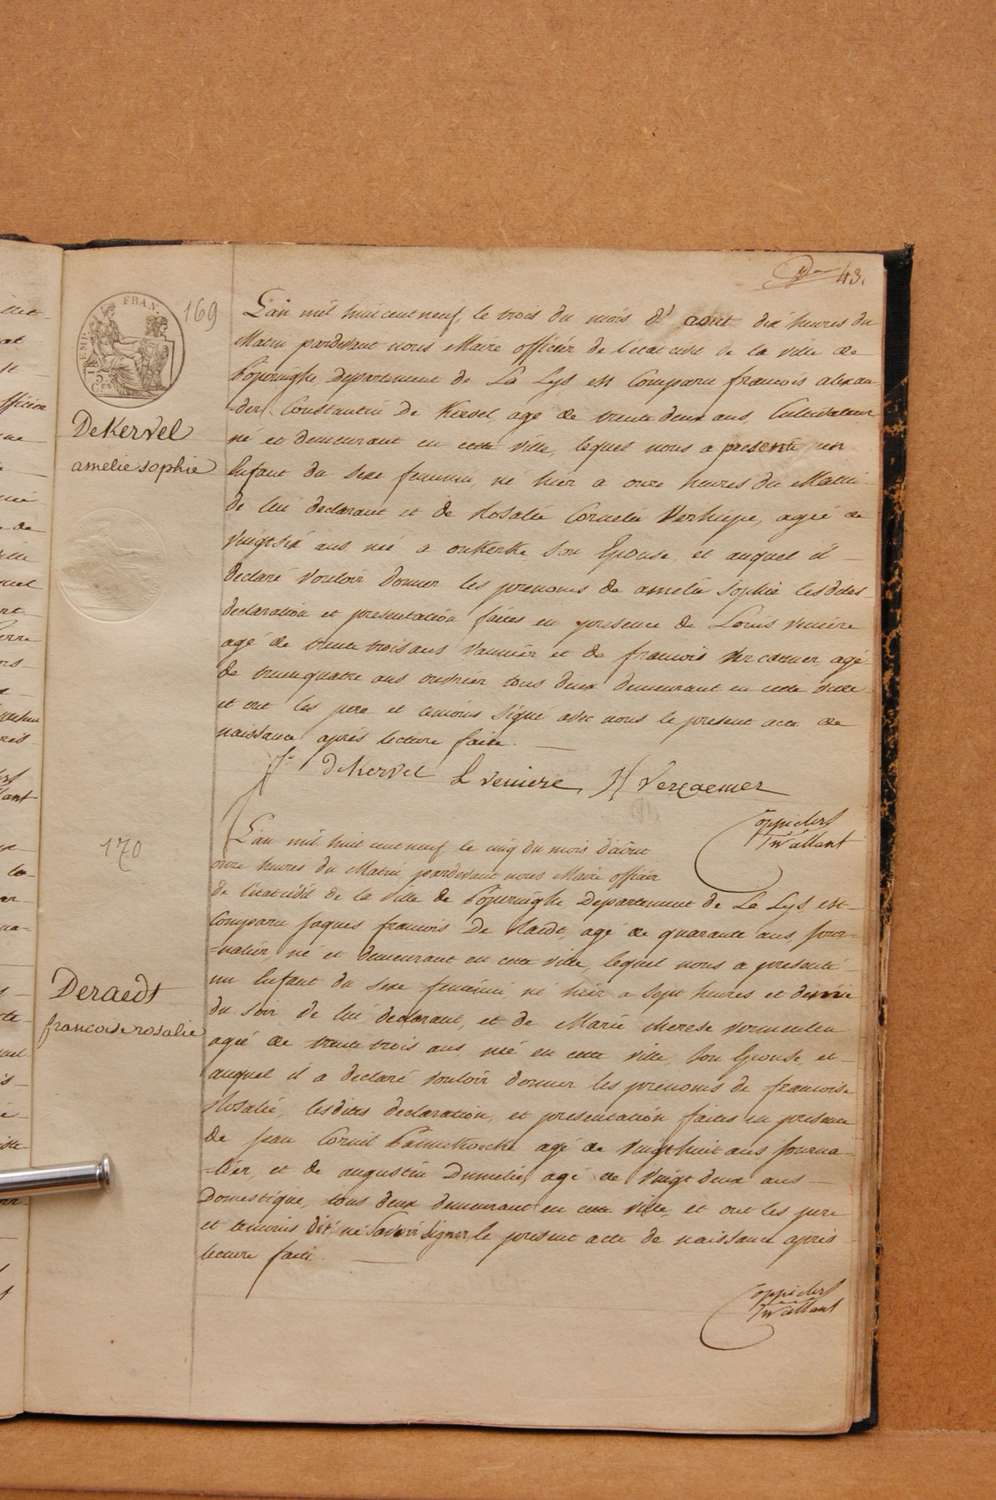 43.
169
FRAN.
L'an mil huit cent neuf, le trois du mois d'aout dix heures du
Matin pardevant nous Maire officier de l'etat civil de la ville de
Popringhe, Departement de La Lys est Comparu francois alexan-
der Constantin De Kervel, agé de trente deux ans, Cultivateur
né et demeurant en cette ville, lequel nous a presenté un
DeKervel
amelie sophie
Enfant du Sexe feminin, né hier a onze heures du Matin
de lui declarant et de Rosalie Cornelie Verhiepe, agée de
vingt six ans née a son Epouse, et auquel il
declaré vouloir donner les prenoms de amelie Sophie lesdites
declaration et presentation faites en presence de Louis veniere
agé de trente trois ans vannier et de francois Vercaemer, agé
de trenquatre ans tous deux demeurant en cette ville
et ont les pere et temoins signé avec nous le present acte de
naissance après lecture faite.
DeKervel L veniere, Vercaemer
170
L'an mil huit cent neuf le cinq du mois d'aout
onze heures du Matin pardevant nous Maire officier
de l'etat civil de la ville de Popringhe Departement de La Lys, est
Comparu Jaques francois De Raedt, agé de quarante ans jour-
-nalier né et demeurant en cette ville, lequel nous a presenté
un Enfant du Sexe feminin né hier a Sept heures et demie
du Soir de lui declarant, et de Marie therese vermeulen
Deraedt
francoise rosalie
agée de trente trois ans née en cette ville, Son Epouse, et
auquel il a declaré vouloir donner les prenoms de francoise
Rosalie, lesdites declaration, et presentation faites en presence
de Jean Corneil agé de Vingt huit ans journa-
-lier, et de augustin agé de Vingt deux ans
Domestique, tous deux demeurant en cette ville, et ont les pere
et temoins dit ne savoir signer, le present acte de naissance après
lecture faite.